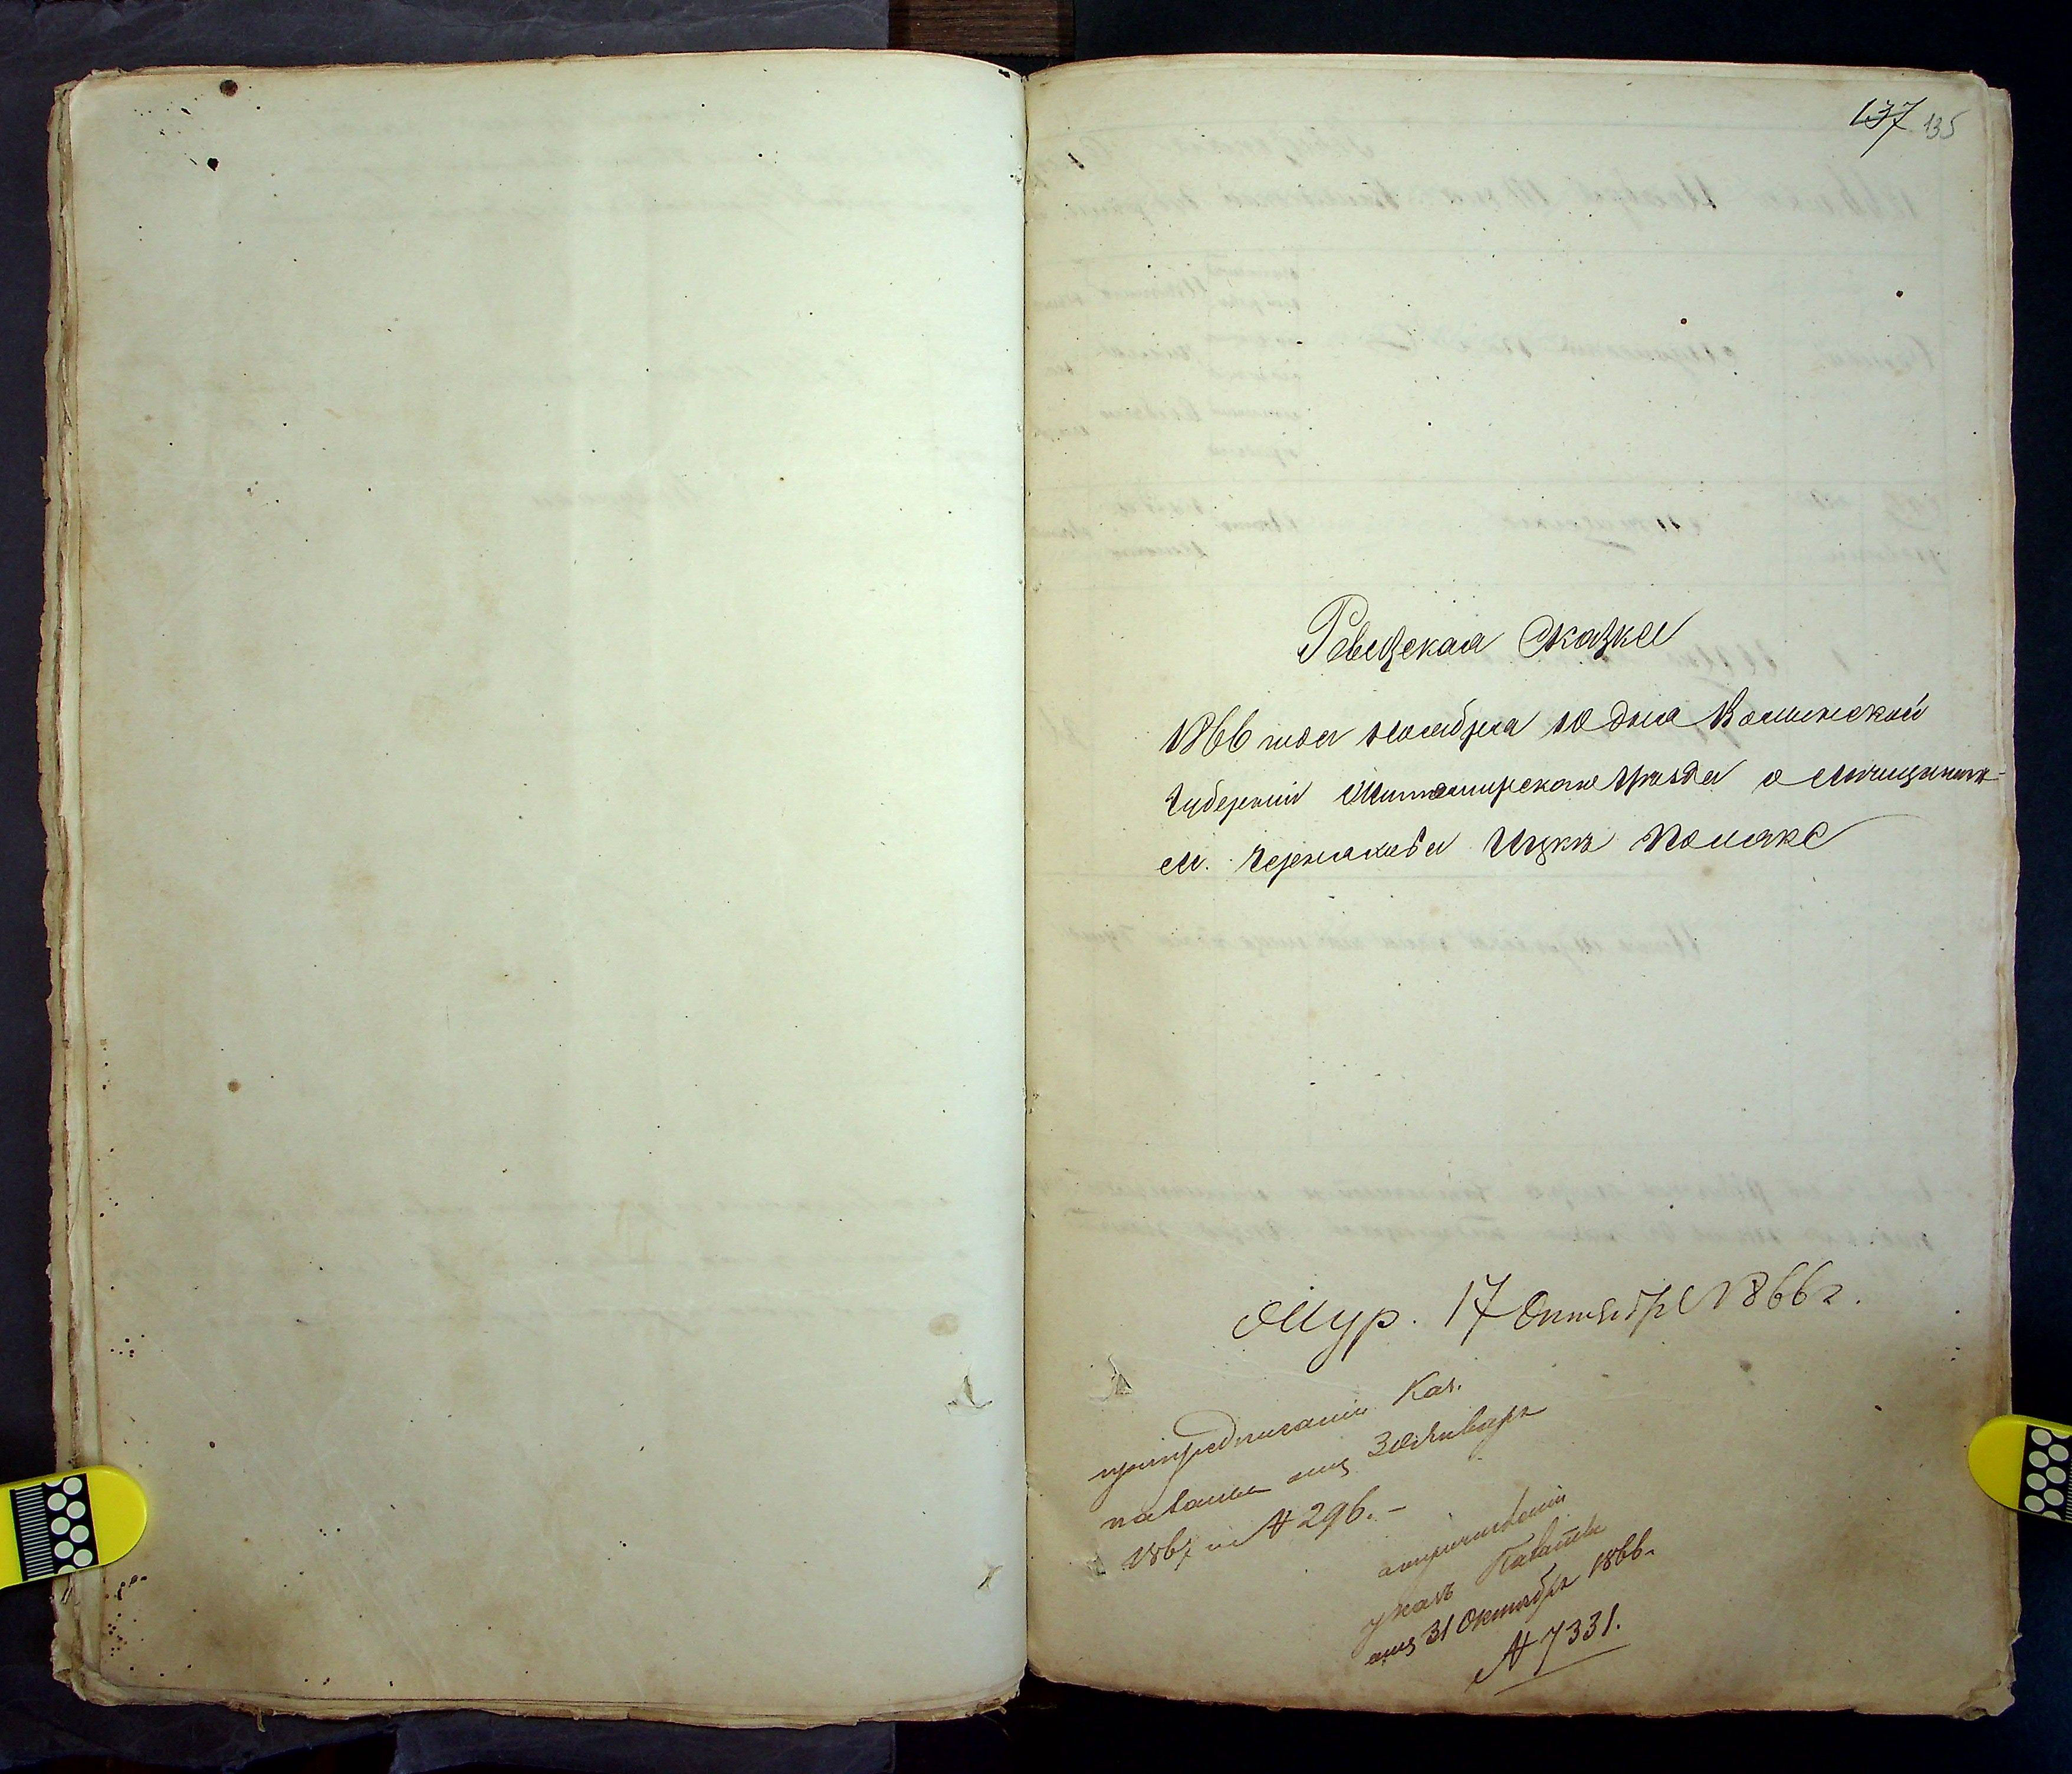 137 135
Ревизская Сказка
1866 года Ноября 10 дня Волынской
Губернии Житомирскаго Уѣзда о мѣщанин-
м. Черняхова Ицкѣ Полякѣ
Жур. 17 Октября 1866 г.
при предписании Каз.
палаты отъ 30 Января
1867 за № 296.-
указъ Палаты
отъ 31 Октября 1866-
№ 7331.